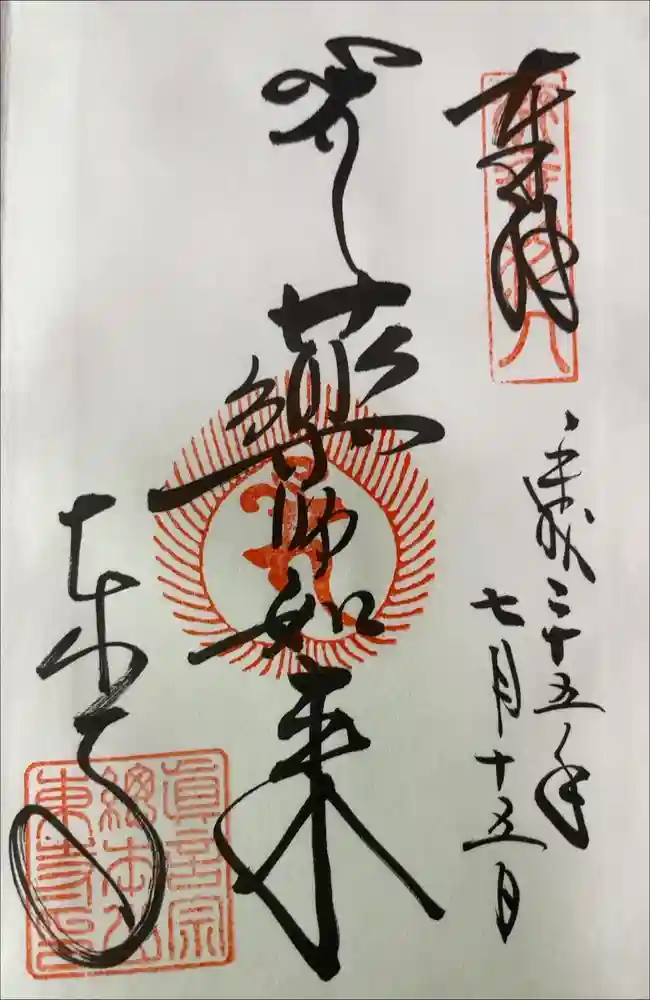 奉拝
平成二十五年
七月十五日
藥師如来
東寺
眞言宗
總本山
東寺印